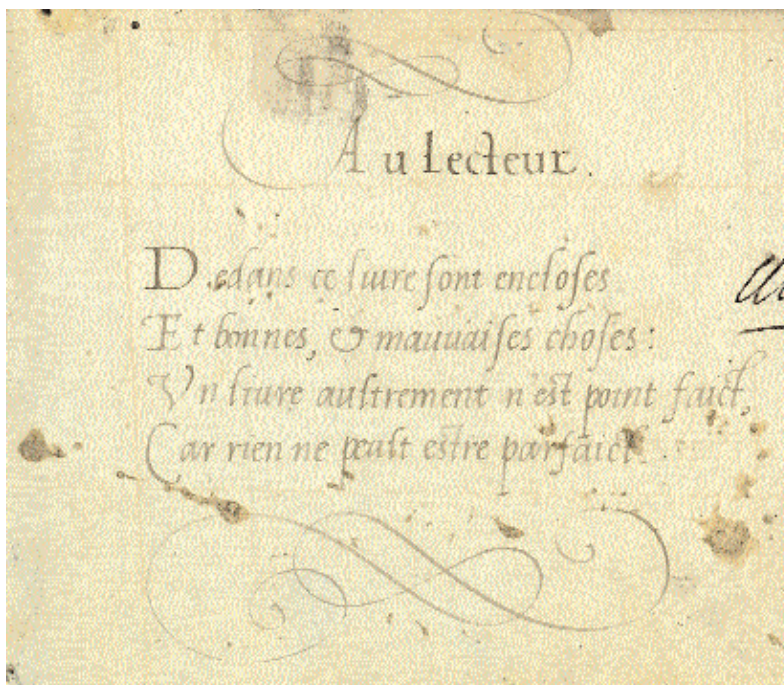 Au Lecteur.
Dedans ce liure sont encloses
Et bonnes, & mauuaises choses:
Vn liure aultrement n'est point faict,
Car rien ne peult estre parfaict.